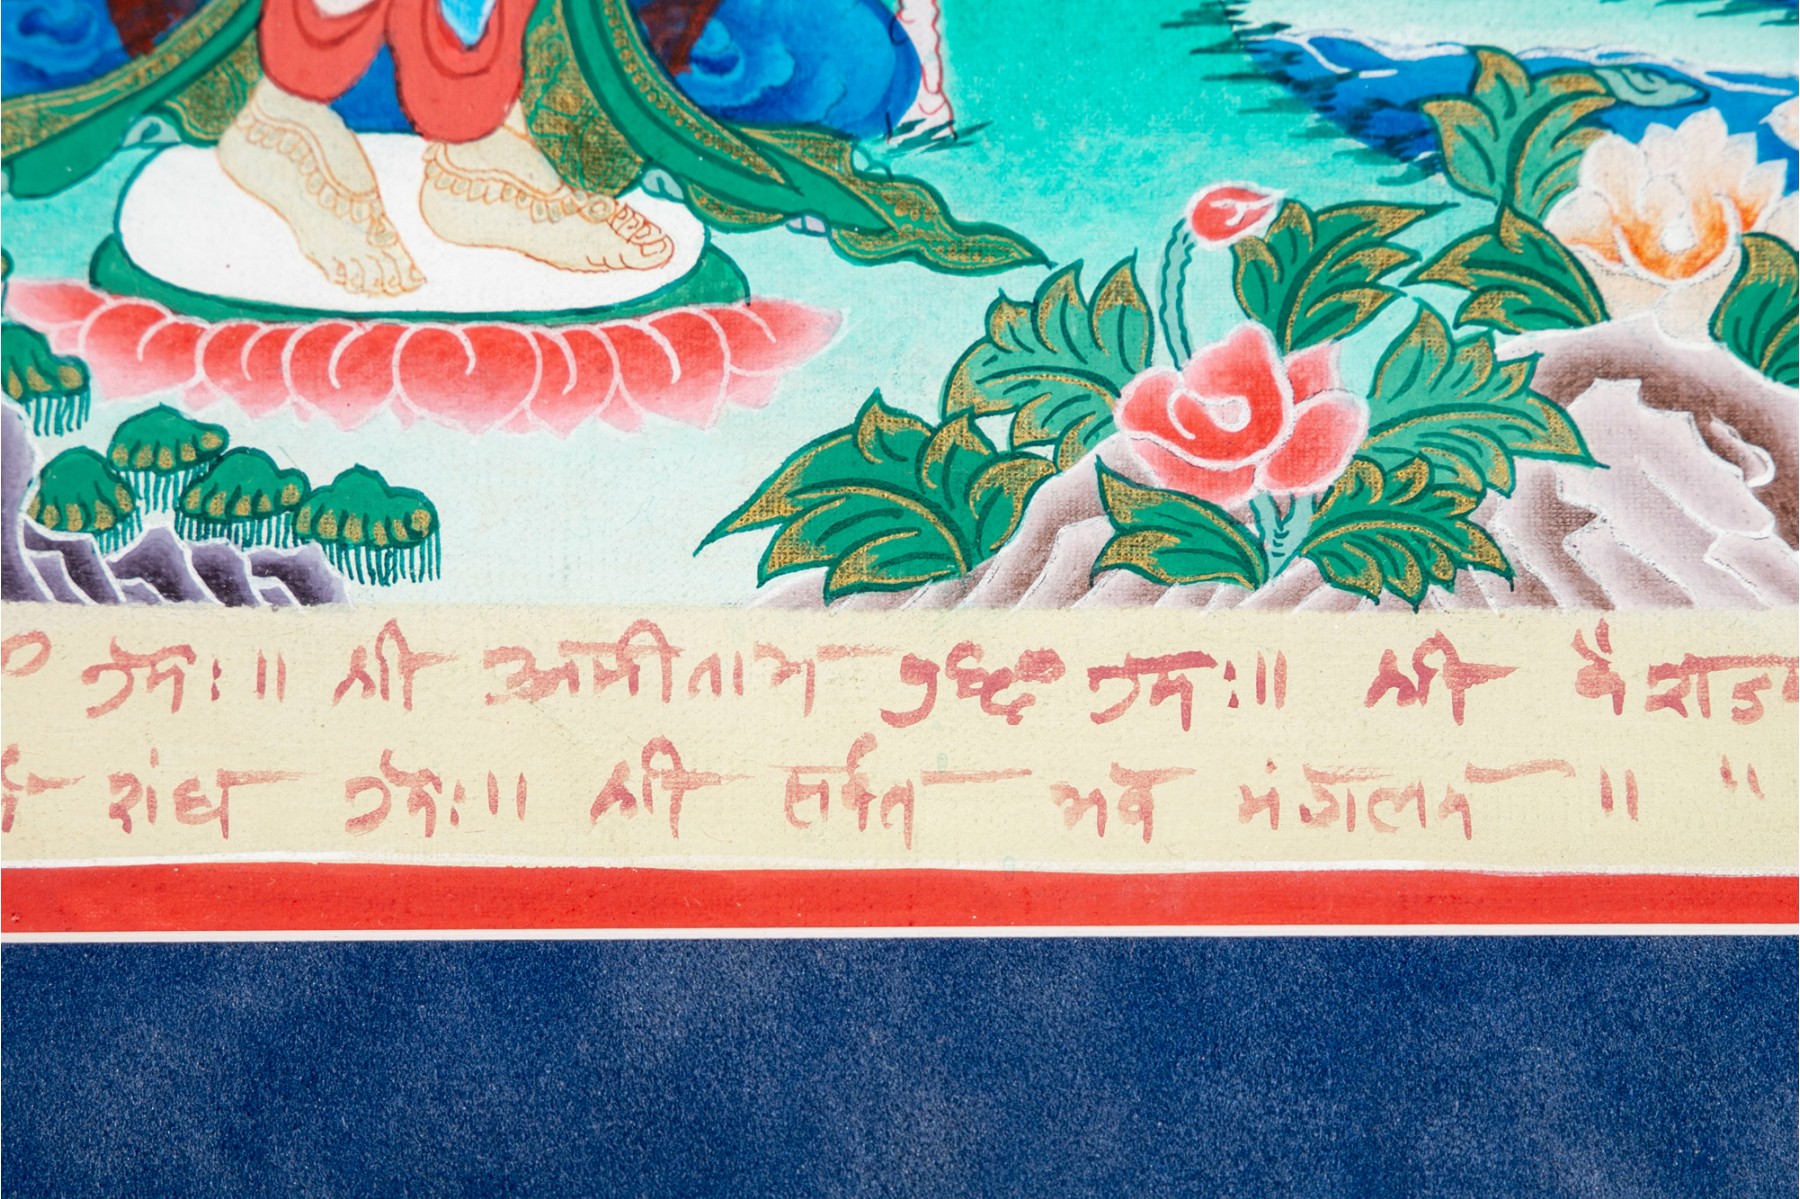 नमः॥ श्री अमीताभ बुद्ध नमः॥ श्री
शंघ नमः॥ श्री सर्वत भव मंगलम ॥